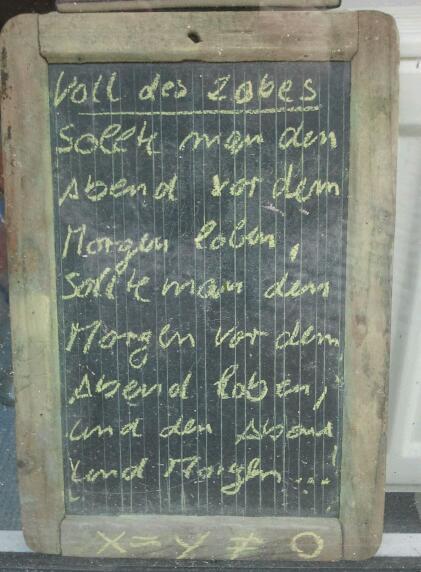 Voll des Lobes
Sollte man den
Abend vor dem
Morgen loben,
Sollte man den
Morgen vor dem
Abend loben,
und den Abend
und Morgen...!
X = Y ≠ O